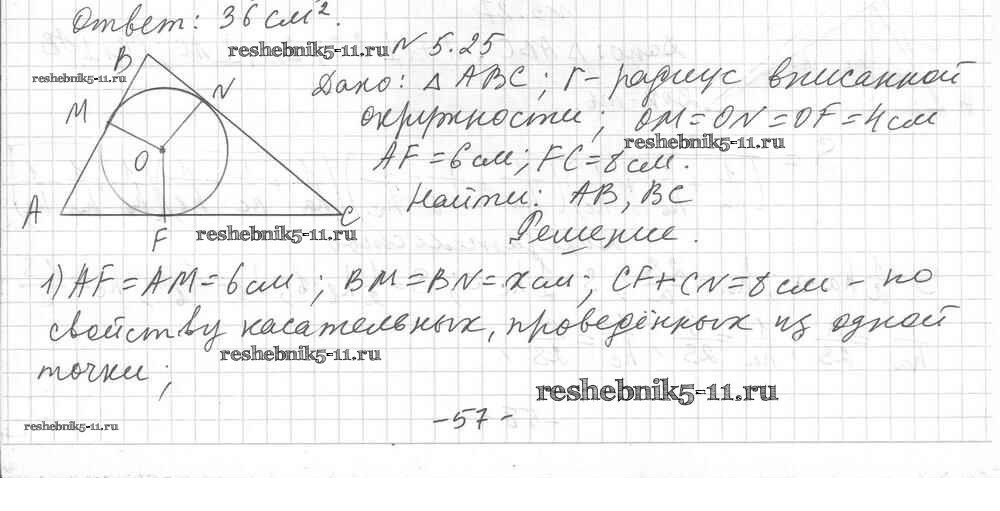 Ответ: 36 см².
reshebnik5-11.ru
N 5.25
B
reshebnik5-11.ru
N
Дано: △ ABC; r – радиус вписанной
M
окружности; OM = ON = OF = 4 см
reshebnik5-11.ru
O
AF = 6 см; FC = 8 см.
Найти: AB, BC
A
C
F
reshebnik5-11.ru
Решение.
1) AF = AM = 6 см; BM = BN = x см; CF + CN = 8 см – по
свойству касательных, проведённых из одной
reshebnik5-11.ru
точки;
reshebnik5-11.ru
– 57 –
reshebnik5-11.ru